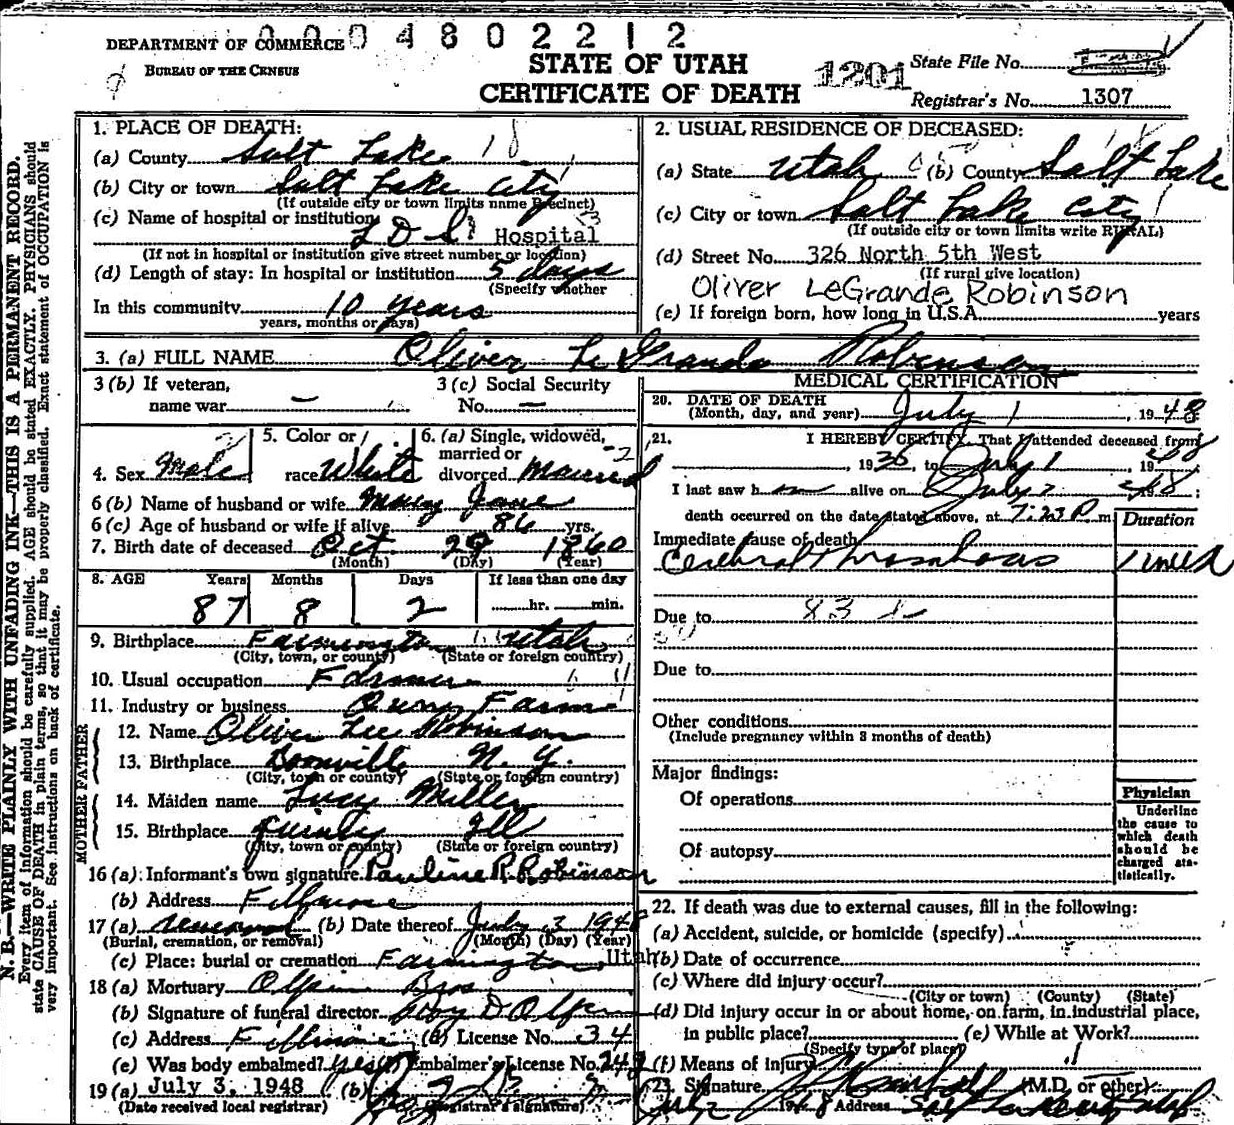 0 0 0 4 8 0 2 2 1 2
DEPARTMENT OF COMMERCE
BUREAU OF THE CENSUS
STATE OF UTAH
CERTIFICATE OF DEATH
1201
State File No.
Registrar's No. 1307
N. B.—WRITE PLAINLY WITH UNFADING INK—THIS IS A PERMANENT RECORD.
Every item of information should be carefully supplied. AGE should be stated EXACTLY. PHYSICIANS should
state CAUSE OF DEATH in plain terms, so that it may be properly classified. Exact statement of OCCUPATION is
very important. See instructions on back of certificate.
1. PLACE OF DEATH:
(a) County Salt Lake
(b) City or town Salt Lake City
(If outside city or town limits name Precinct)
(c) Name of hospital or institution
L D S Hospital
(If not in hospital or institution give street number or location)
(d) Length of stay: In hospital or institution 5 days
(Specify whether
In this community 10 years
years, months or days)
2. USUAL RESIDENCE OF DECEASED:
(a) State Utah (b) County Salt Lake
(c) City or town Salt Lake City
(If outside city or town limits write RURAL)
(d) Street No. 326 North 5th West
(If rural give location)
Oliver LeGrande Robinson
(e) If foreign born, how long in U.S.A. years
3. (a) FULL NAME Oliver Le Grande Robinson
3 (b) If veteran,
name war —
3 (c) Social Security
No. —
4. Sex Male
5. Color or
race White
6. (a) Single, widowed,
married or
divorced Married
6 (b) Name of husband or wife Mary Jane
6 (c) Age of husband or wife if alive 86 yrs.
7. Birth date of deceased Oct 29 1860
(Month) (Day) (Year)
8. AGE Years Months Days If less than one day
87 8 2 hr. min.
9. Birthplace Farmington Utah
(City, town, or county) (State or foreign country)
10. Usual occupation Farmer
11. Industry or business Own Farm
FATHER
12. Name Oliver Lee Robinson
13. Birthplace Boonville N. Y.
(City, town or county) (State or foreign country)
MOTHER
14. Maiden name Lucy Miller
15. Birthplace Quincy Ill
(City, town or county) (State or foreign country)
16 (a) Informant's own signature Pauline R. Robinson
(b) Address Fillmore
17 (a) removal (b) Date thereof July 3 1948
(Burial, cremation, or removal) (Month) (Day) (Year)
(c) Place: burial or cremation Farmington, Utah
18 (a) Mortuary Olpin Bros
(b) Signature of funeral director Roy D Olpin
(c) Address Fillmore (d) License No. 34
(e) Was body embalmed? yes (f) Embalmer's License No. 249
19 (a) July 3, 1948 (b)
(Date received local registrar) (Registrar's signature)
MEDICAL CERTIFICATION
20. DATE OF DEATH
(Month, day, and year) July 1, 1948
21. I HEREBY CERTIFY, That I attended deceased from
, 1936, to July 1, 1948
I last saw him alive on July 1948;
death occurred on the date stated above, at 7:23 P m.
Duration
Immediate cause of death
Cerebral Thrombosis 1 week
Due to 83
Due to
Other conditions
(Include pregnancy within 3 months of death)
Major findings:
Of operations
Of autopsy
Physician
Underline
the cause to
which death
should be
charged sta-
tistically.
22. If death was due to external causes, fill in the following:
(a) Accident, suicide, or homicide (specify)
(b) Date of occurrence
(c) Where did injury occur?
(City or town) (County) (State)
(d) Did injury occur in or about home, on farm, in industrial place,
in public place? (e) While at Work?
(Specify type of place)
(f) Means of injury
23. Signature (M.D. or other)
July 1948 Address Salt Lake City Utah